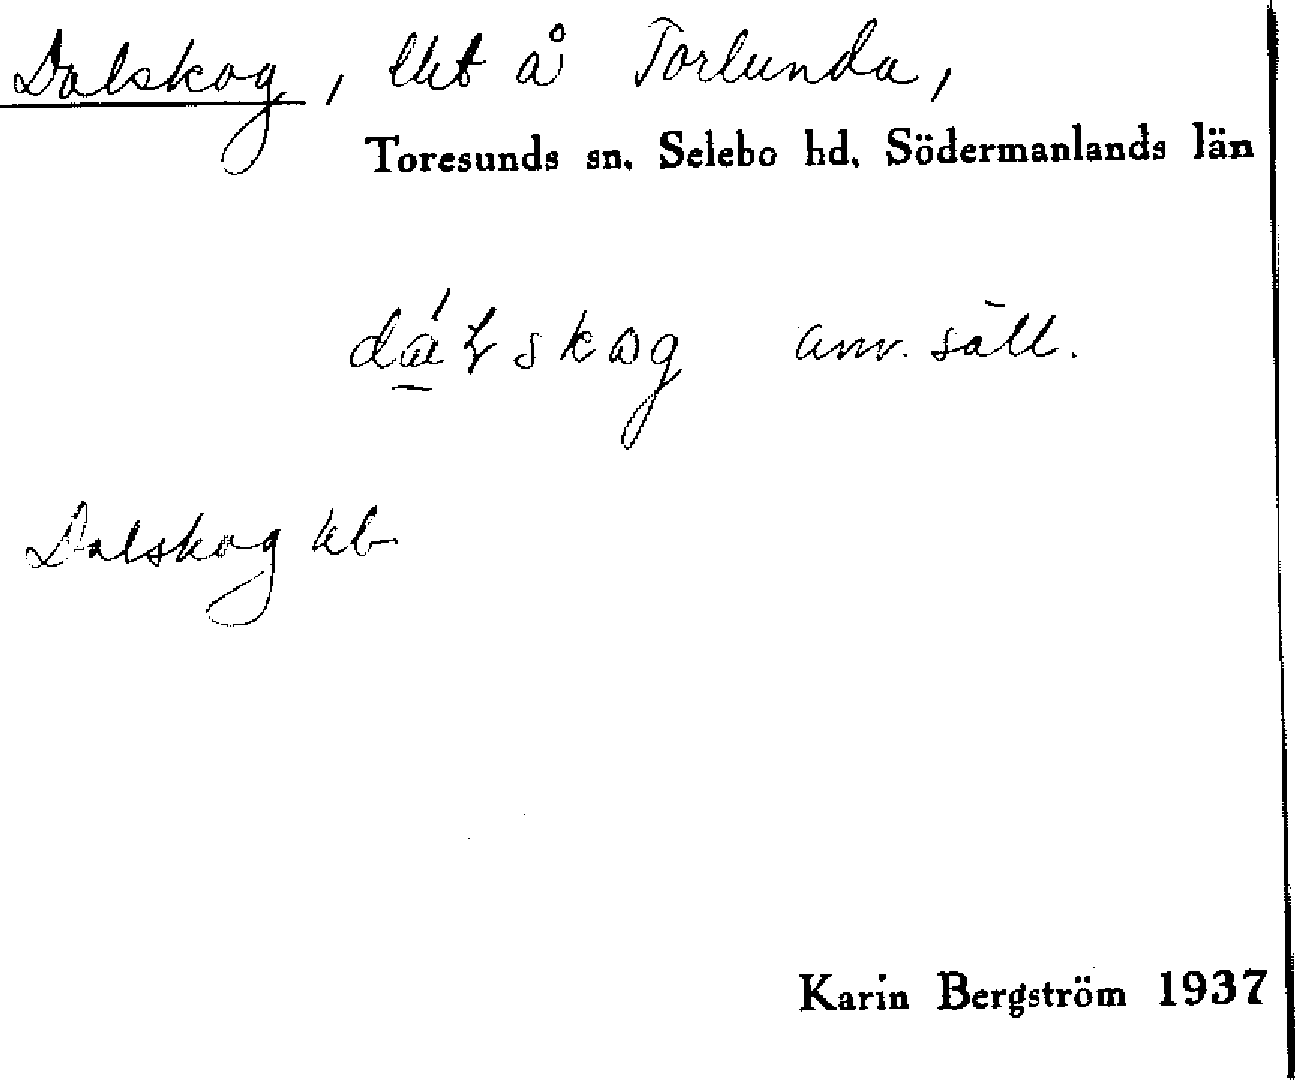 Dalskog, lht å Torlunda,
Toresunds sn. Selebo hd. Södermanlands län
dálskog anv. säll.
Dalskog kb
Karin Bergström 1937